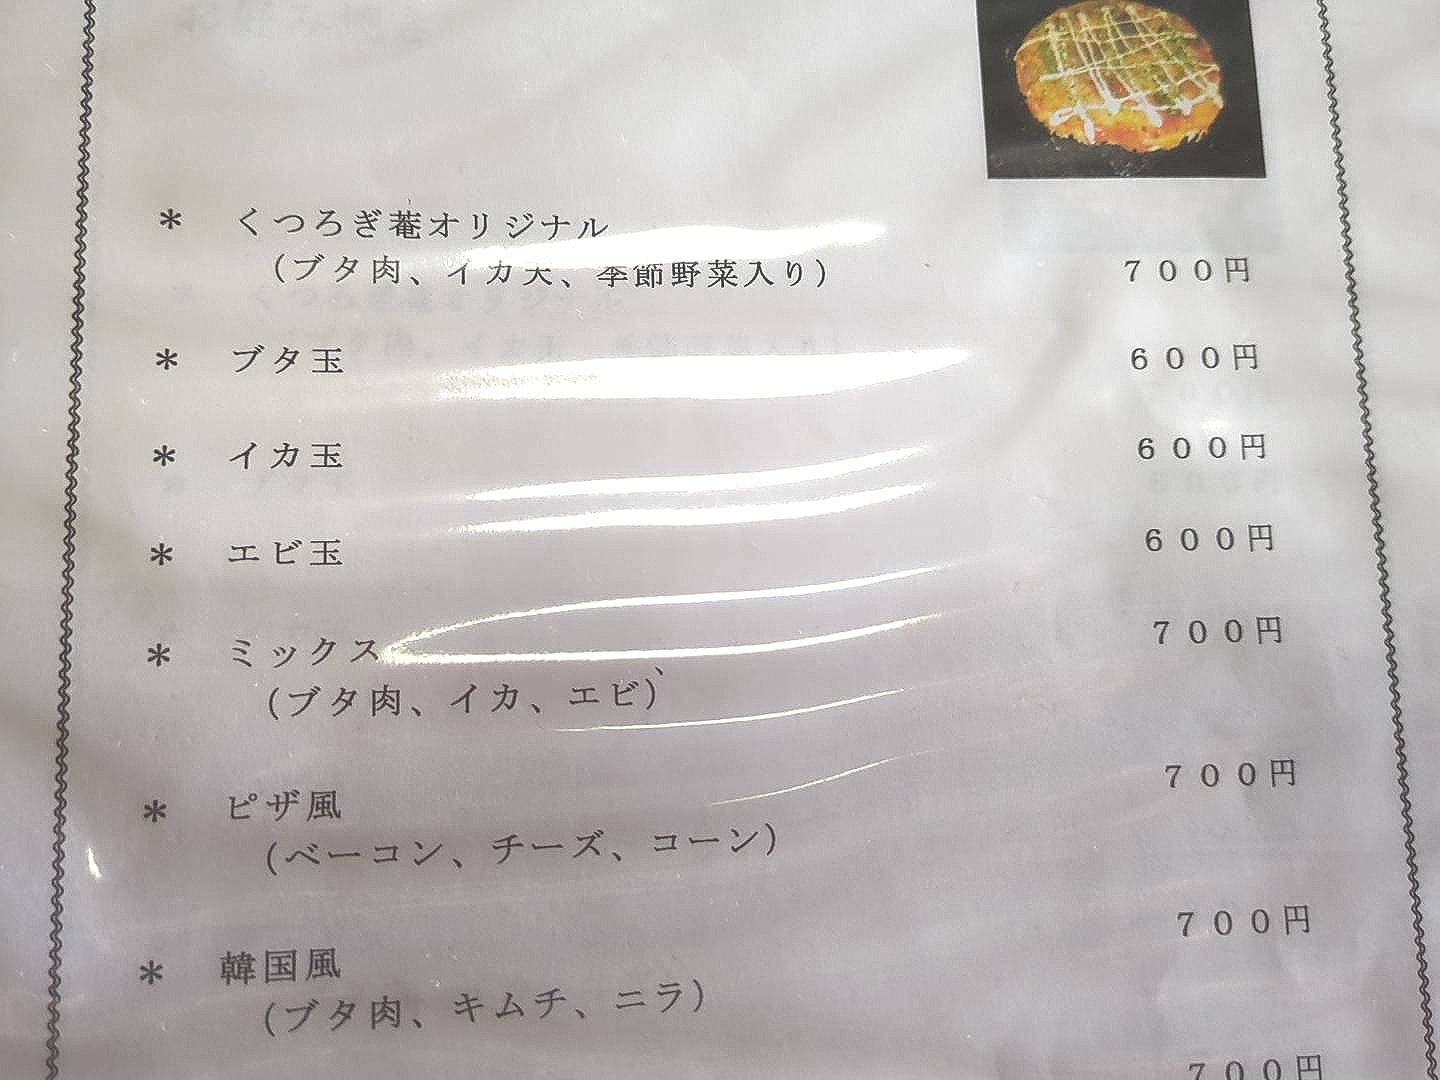 ＊ くつろぎ菴オリジナル
（ブタ肉、イカ天、季節野菜入り） ７００円
＊ ブタ玉 ６００円
＊ イカ玉 ６００円
＊ エビ玉 ６００円
＊ ミックス ７００円
（ブタ肉、イカ、エビ）
＊ ピザ風 ７００円
（ベーコン、チーズ、コーン）
＊ 韓国風 ７００円
（ブタ肉、キムチ、ニラ）
７００円